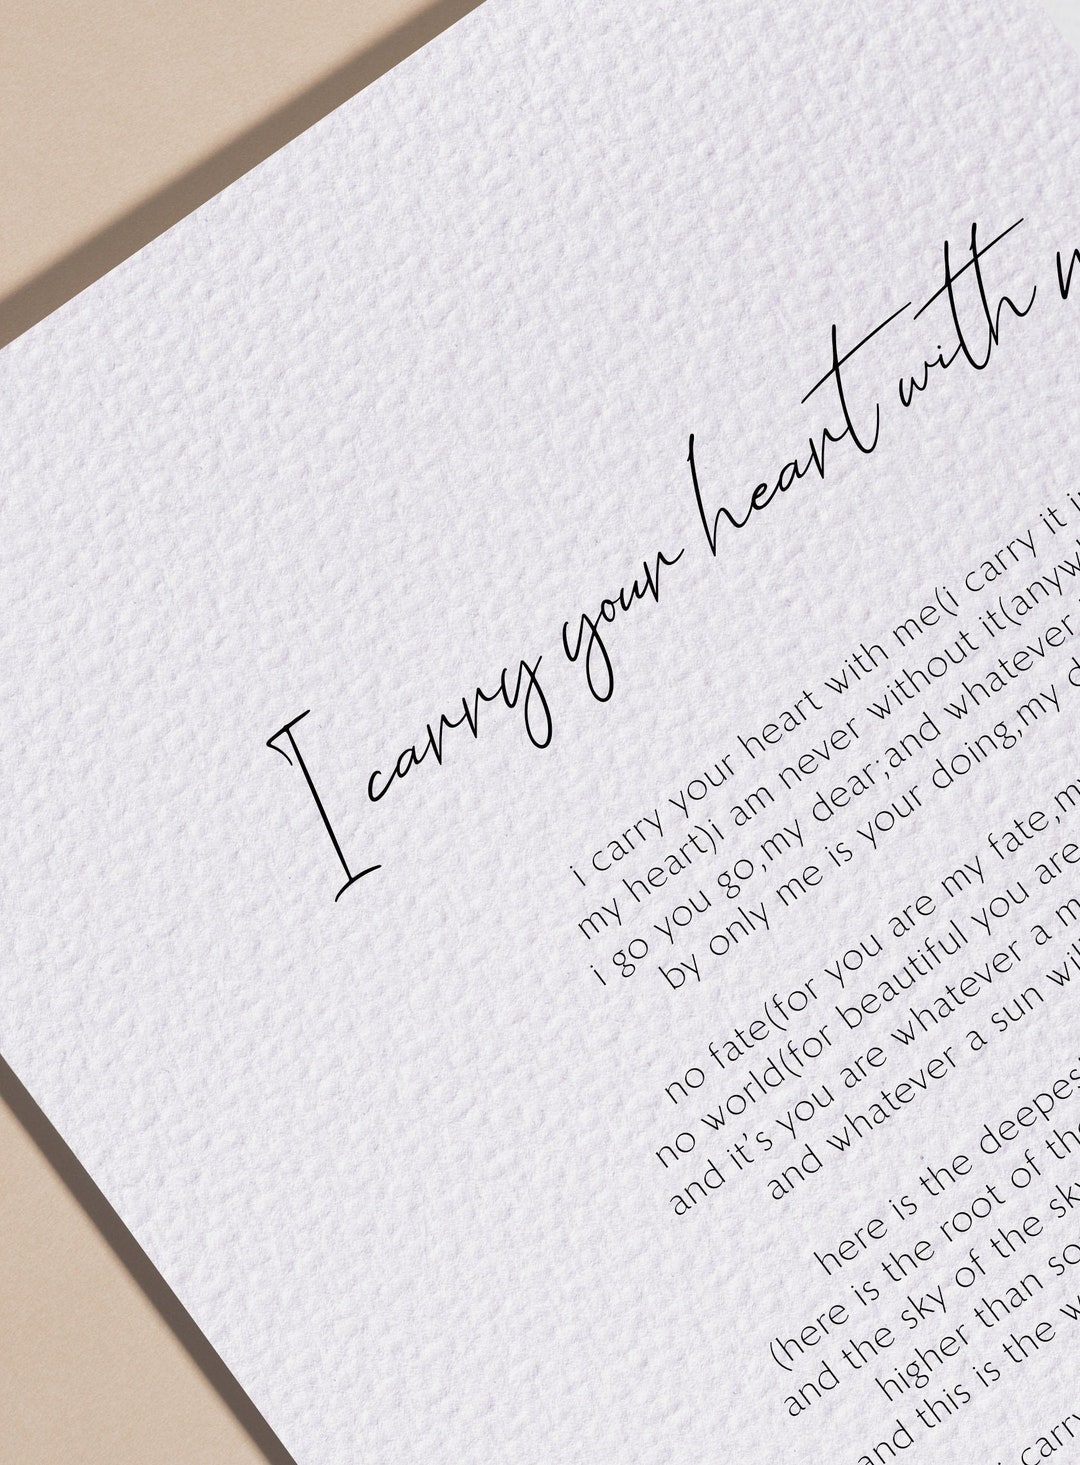 I carry your heart with
i carry your heart with me(i carry it
my heart)i am never without it(
i go you go,my dear;and whatever
by only me is your doing,my
no fate(for you are my fate,
no world(for beautiful you are
and it’s you are whatever a
and whatever a sun
here is the
(here is the root of
and the sky of the
higher than
and this is the